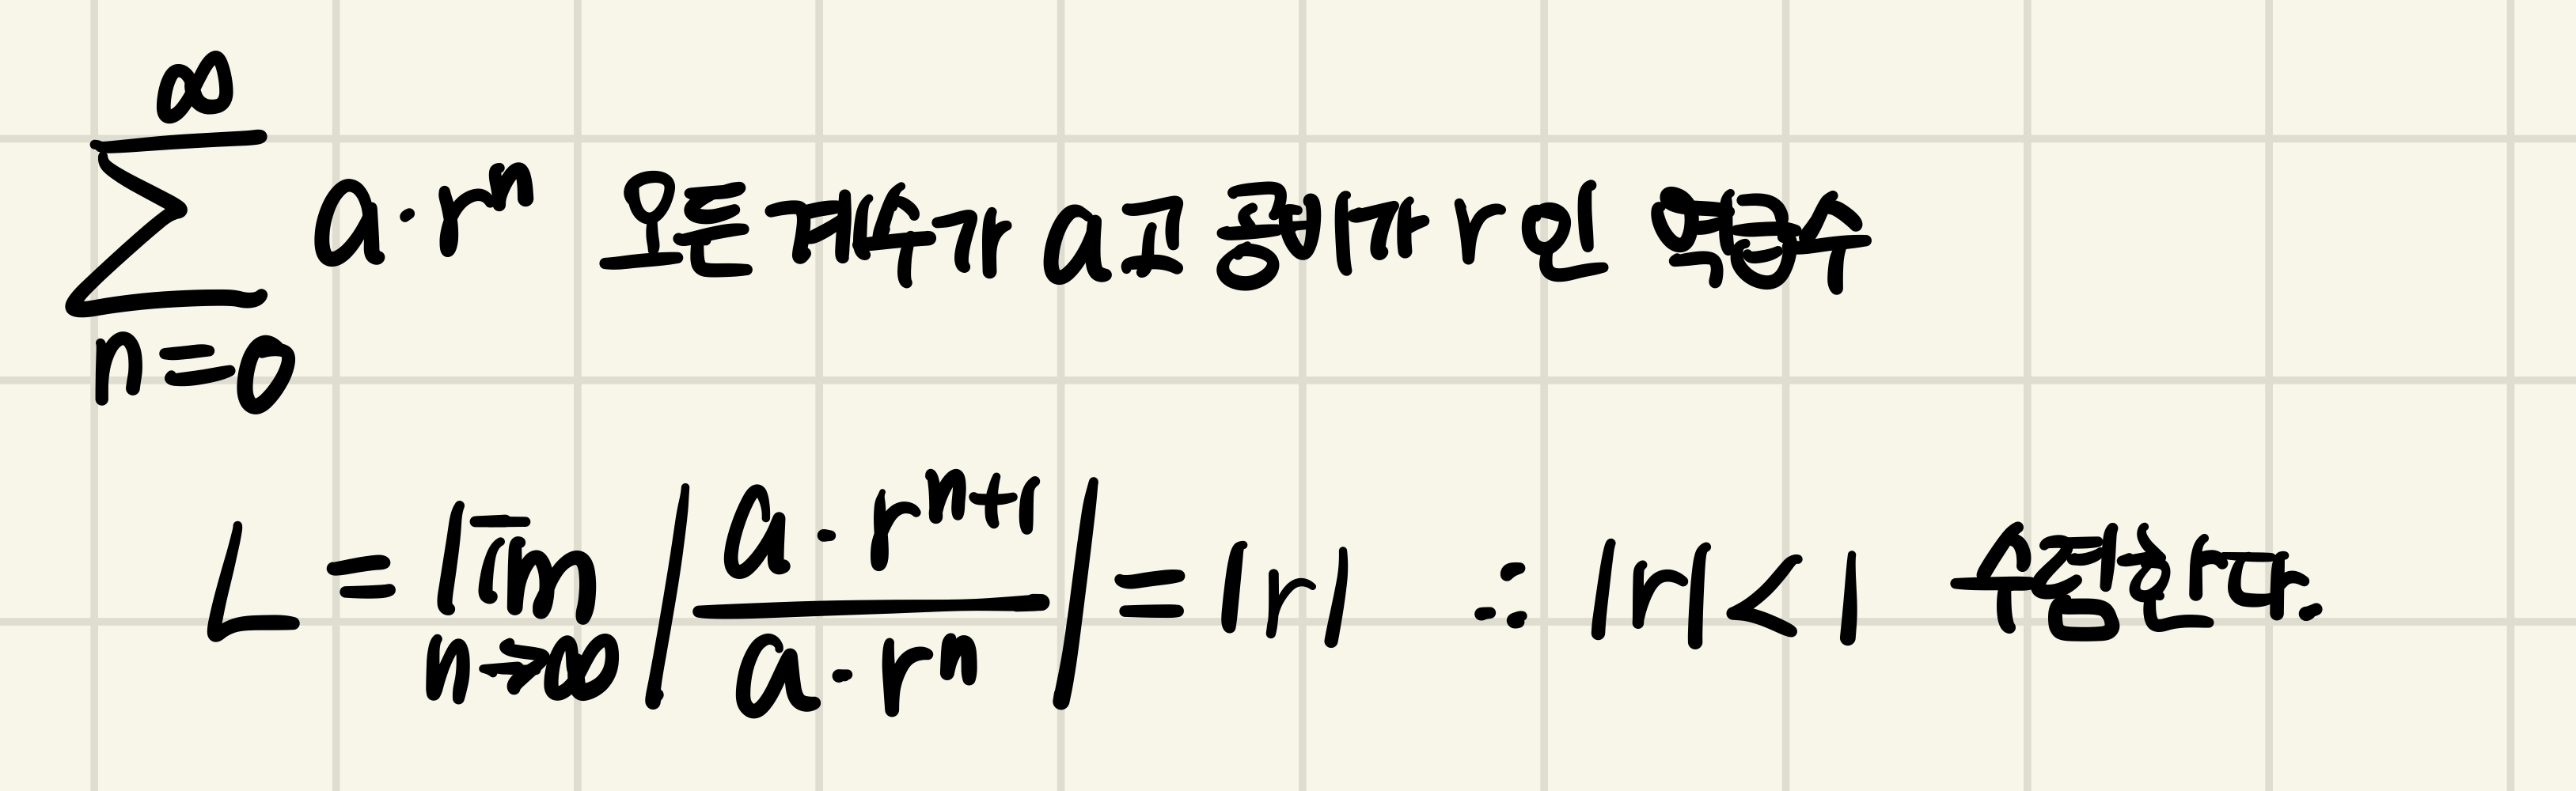 ∞∑n=0 a·rⁿ 모든 계수가 a고 공비가 r인 멱급수
L = lim n→∞ |a·rⁿ⁺¹ / a·rⁿ| = |r| ∴ |r| < 1 수렴한다.